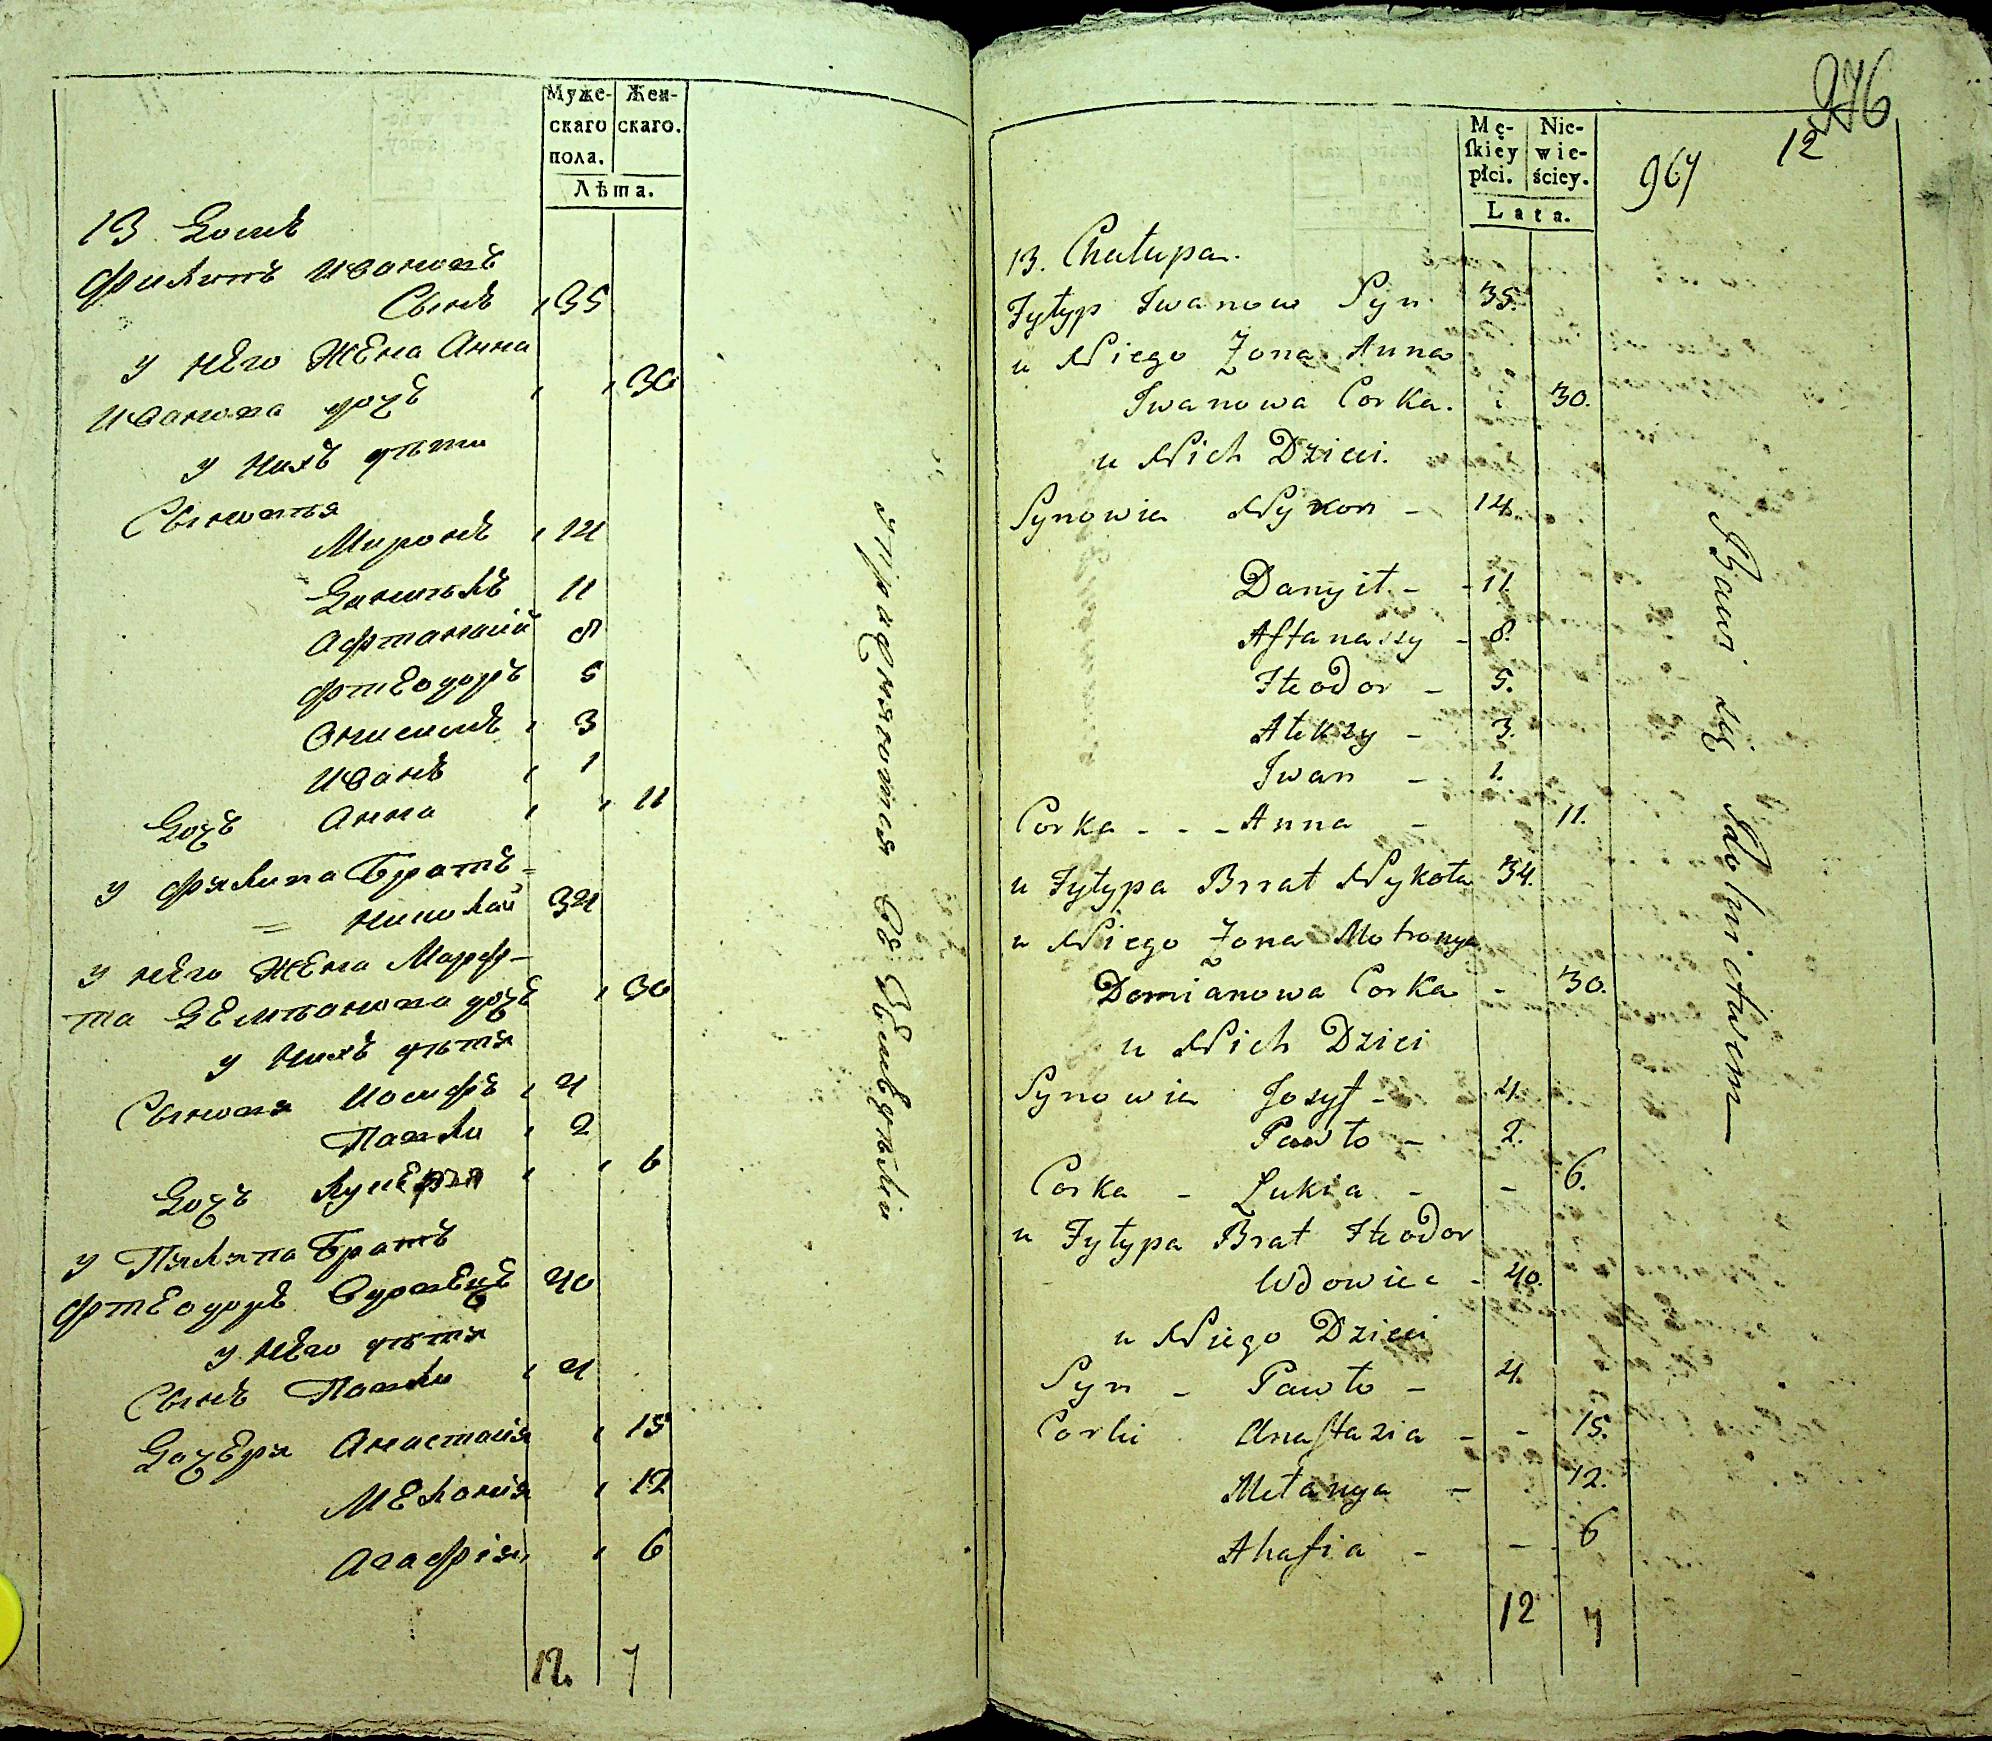 Муже-
скаго
пола.
Жен-
скаго.
Лѣта.
13 Домъ
Филипъ Ивановъ
Сынъ 35
у него Жена Анна
Иванова дочь 30
у нихъ дѣти
Сыновья
Миронъ 14
Данилъ 11
Афтанасій 8
Фтеодоръ 5
Онисимъ 3
Иванъ 1
Дочь Анна 11
у Филипа Братъ =
= Николай 34
у него Жена Марф-
та Демьянова дочь 30
у нихъ дѣти
Сыновя Иосифъ 4
Павло 2
Дочь 6
у Пилипа Братъ
Фтеодоръ Вдовецъ 40
у него дѣти
Сынъ Павло 4
Дочери Анастасія 15
Меланія 12
Агафія 6
12. 7
упражняются въ Земледѣліи
276
12
964
Mę-
ſkiey
płci.
Nie-
wie-
ściey.
Lata.
13. Chałupa.
Fyłyp Iwanow Syn 35.
u Niego Żona Anna
Iwanowa Corka. 30.
u Nich Dzieci.
Synowie Nykon - 14.
Danyił - - 11.
Aftanazy - 8.
Fteodor - 5.
Ałekzy - 3.
Iwan - 1.
Corka - - - Anna - 11.
u Fyłypa Brrat Nykoła 34.
u Niego Żona Motronya
Domianowa Corka - 30.
u Nich Dzieci
Synowie Jozyf - 4.
Pawło - 2.
Corka - Łukia - - 6.
u Fyłypa Brat Fteodor
Wdowiec - 40.
u Niego Dzieci
Syn - Pawło - 4.
Corki Anaſtazia - - 15.
Mełanya - 12.
Ahafia - - 6
12 7
Bawi się Rolnictwem